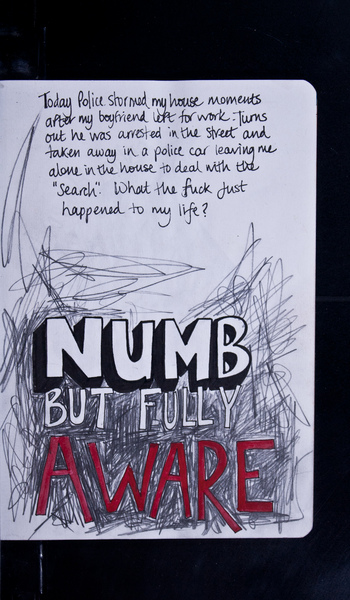 Today Police stormed my house moments
after my boyfriend left for work. Turns
out he was arrested in the street and
taken away in a police car leaving me
alone in the house to deal with the
"search". What the fuck just
happened to my life?
NUMB
BUT FULLY
AWARE